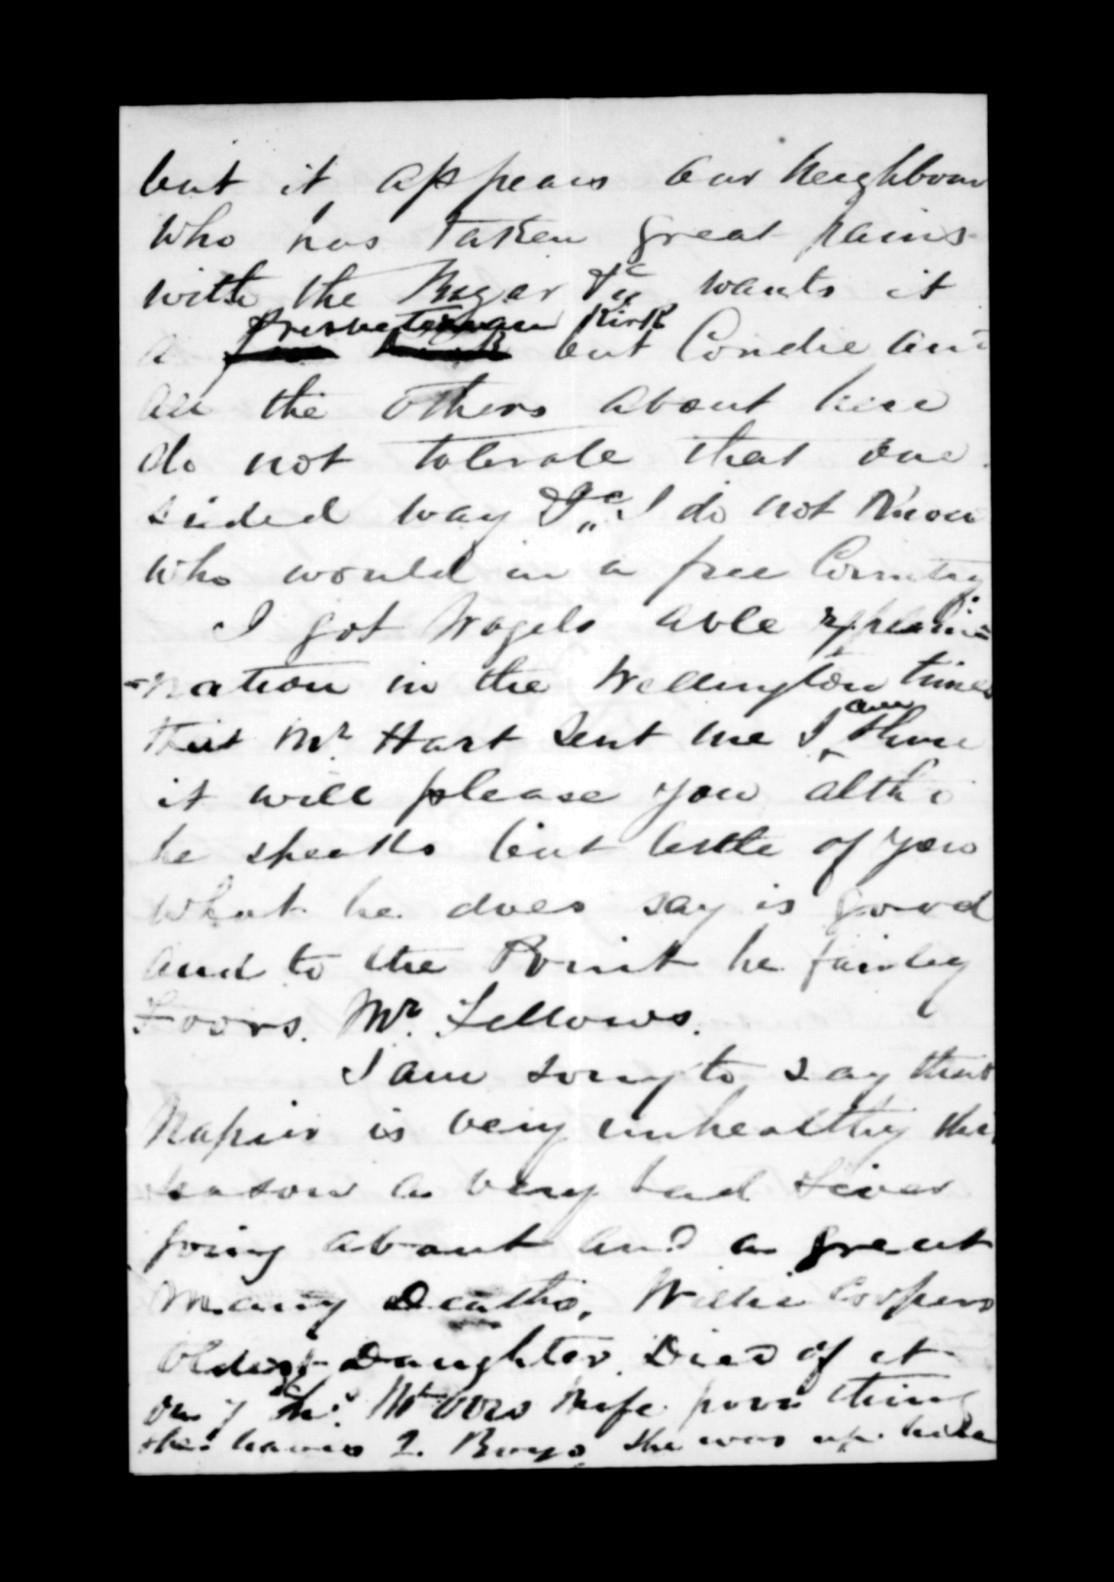 but it appears our Neighbour
who has taken great pains
with the &c wants it
a Presbeterian Kirk but Condie and
all the others about here
do not tolerate that one
sided way &c. I do not Know
who would in a free Country
I got Vogels able explain=
=nation in the Wellington times
that Mr Hart sent me I am shure
it will please you altho
he speaks but little of you
what he does say is good
and to the Point he fairley
Floors. Mr. Fellows.
I am sorry to say that
Napier is very unhealthy this
season a very bad Fever
going about and a great
Many Deaths. Willie Coopers
Oldest Daughter Died of it
one of Wife poor thing
she leaves 2. Boys she was up here